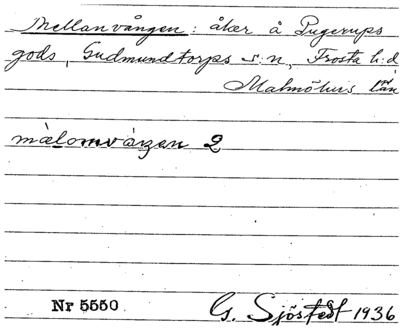 Mellanvången: åker å Pugerups
gods, Gudmundtorps s:n, Frosta h:d
Malmöhus län
màlomvåŋen 2
Nr 5550
G. Sjöstedt 1936